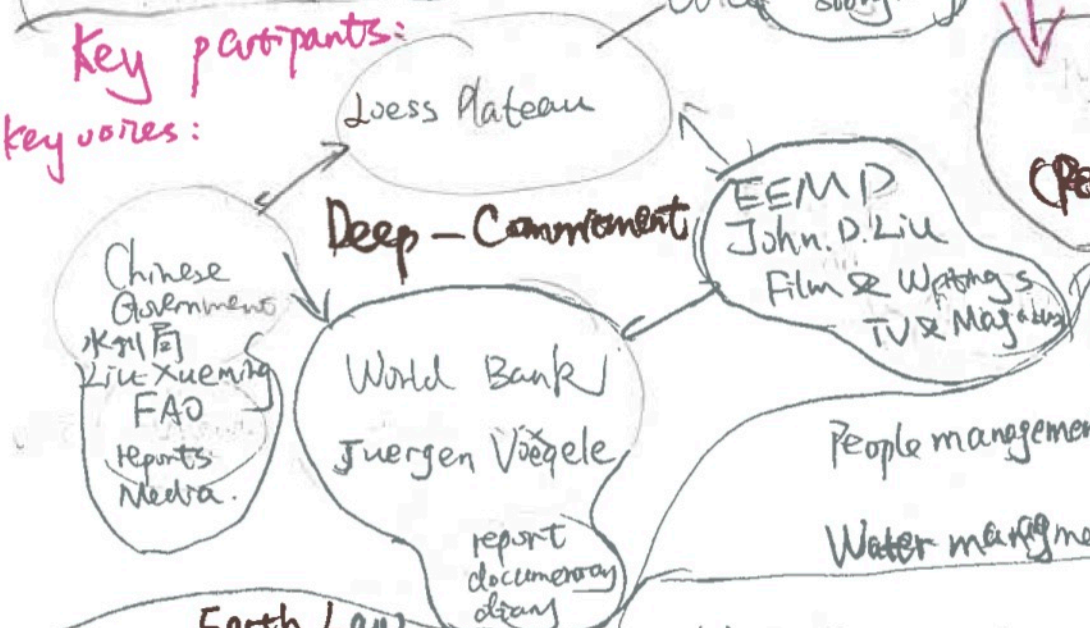 Key partipants:
key voires:
Loess Plateau
Deep - Commitment
EEMP
John. D. Liu
Film & Writings
TV & Mag
Chinese
Government
水利局
Liu Xueming
FAO
reports
Media.
World Bank
Juergen Voegele
report
documenray
diany
People managemen
Water managme
Earth Law